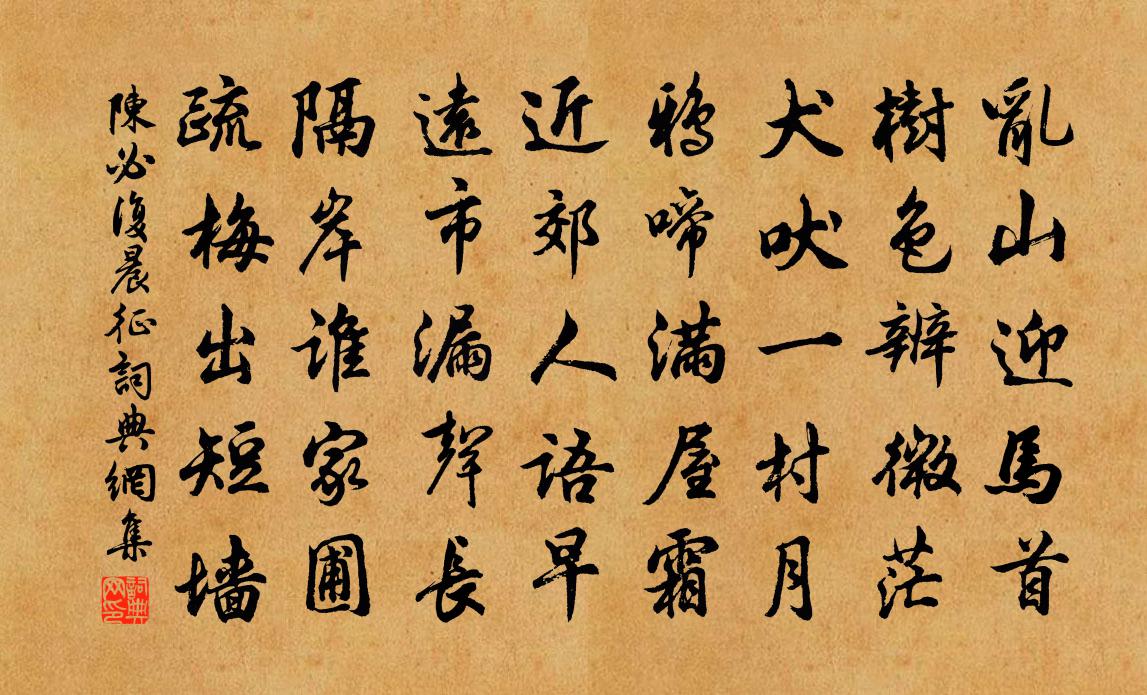 亂山迎馬首
樹色辨微茫
犬吠一村月
鴉啼滿屋霜
近郊人語早
遠市漏聲長
隔岸誰家圃
疏梅出短墻
陳必復晨征詞典網集
詞典网印